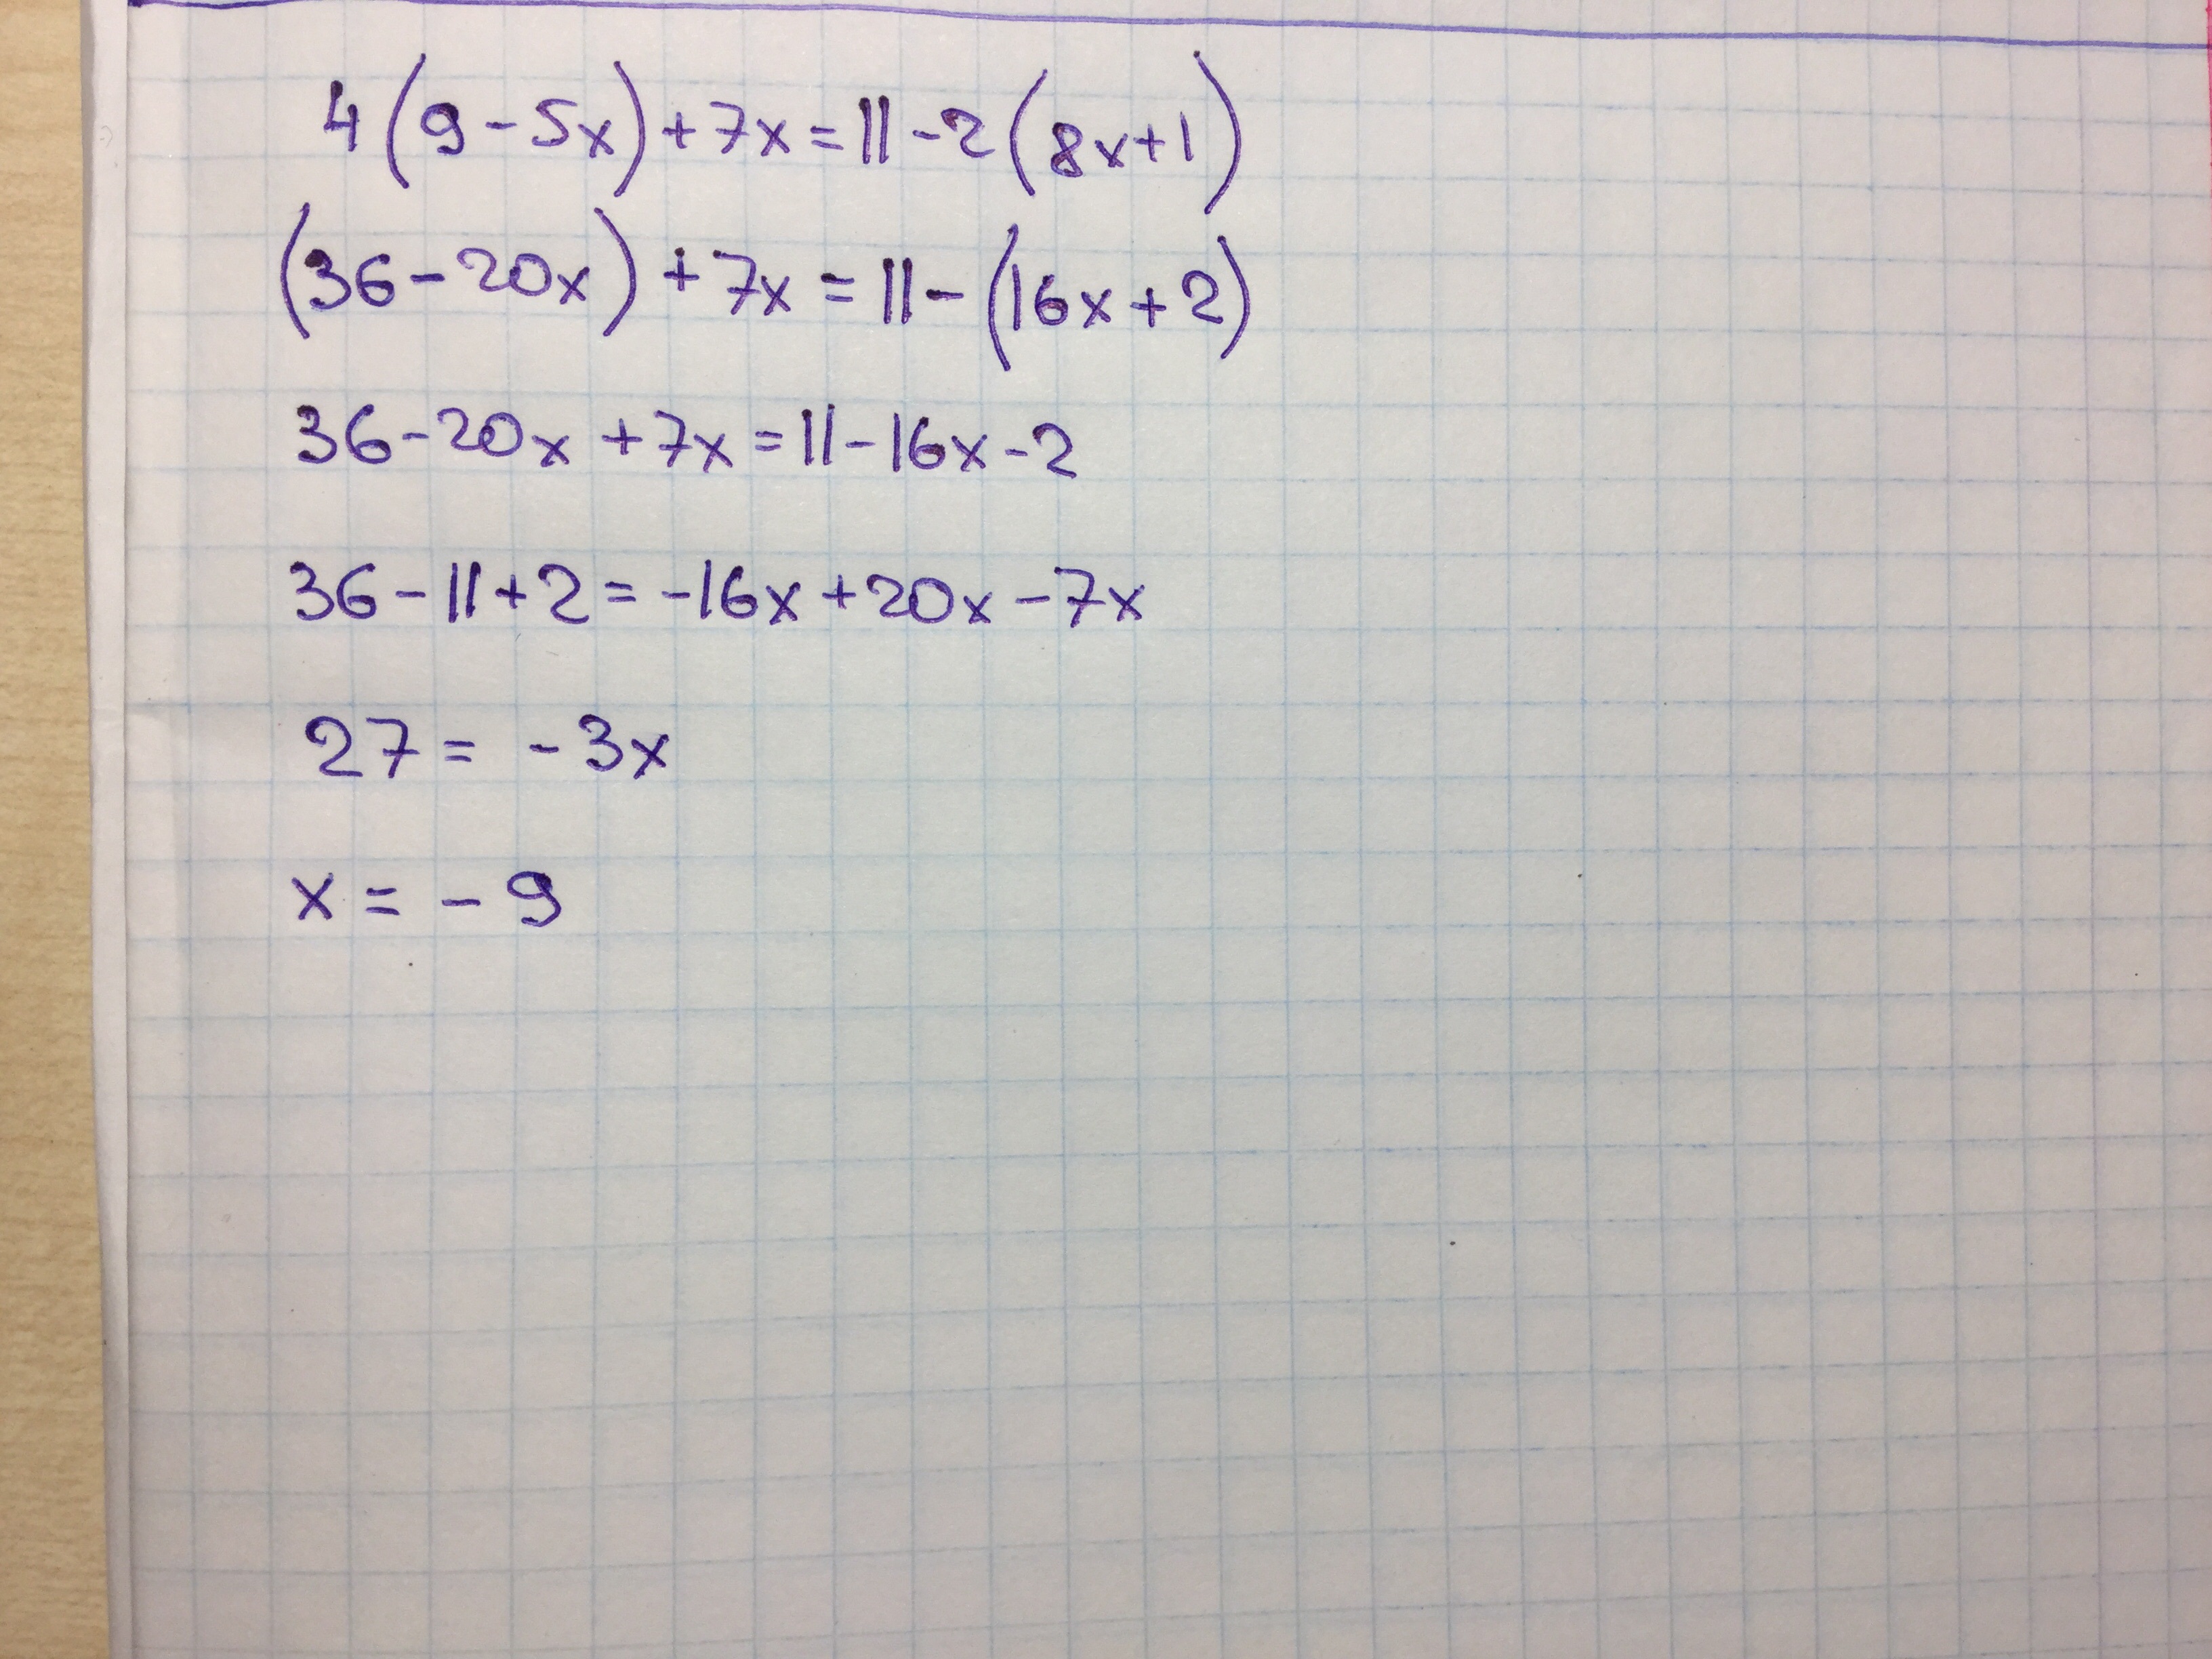 4(9-5x)+7x=11-2(8x+1)
(36-20x)+7x=11-(16x+2)
36-20x+7x=11-16x-2
36-11+2=-16x+20x-7x
27=-3x
x=-9